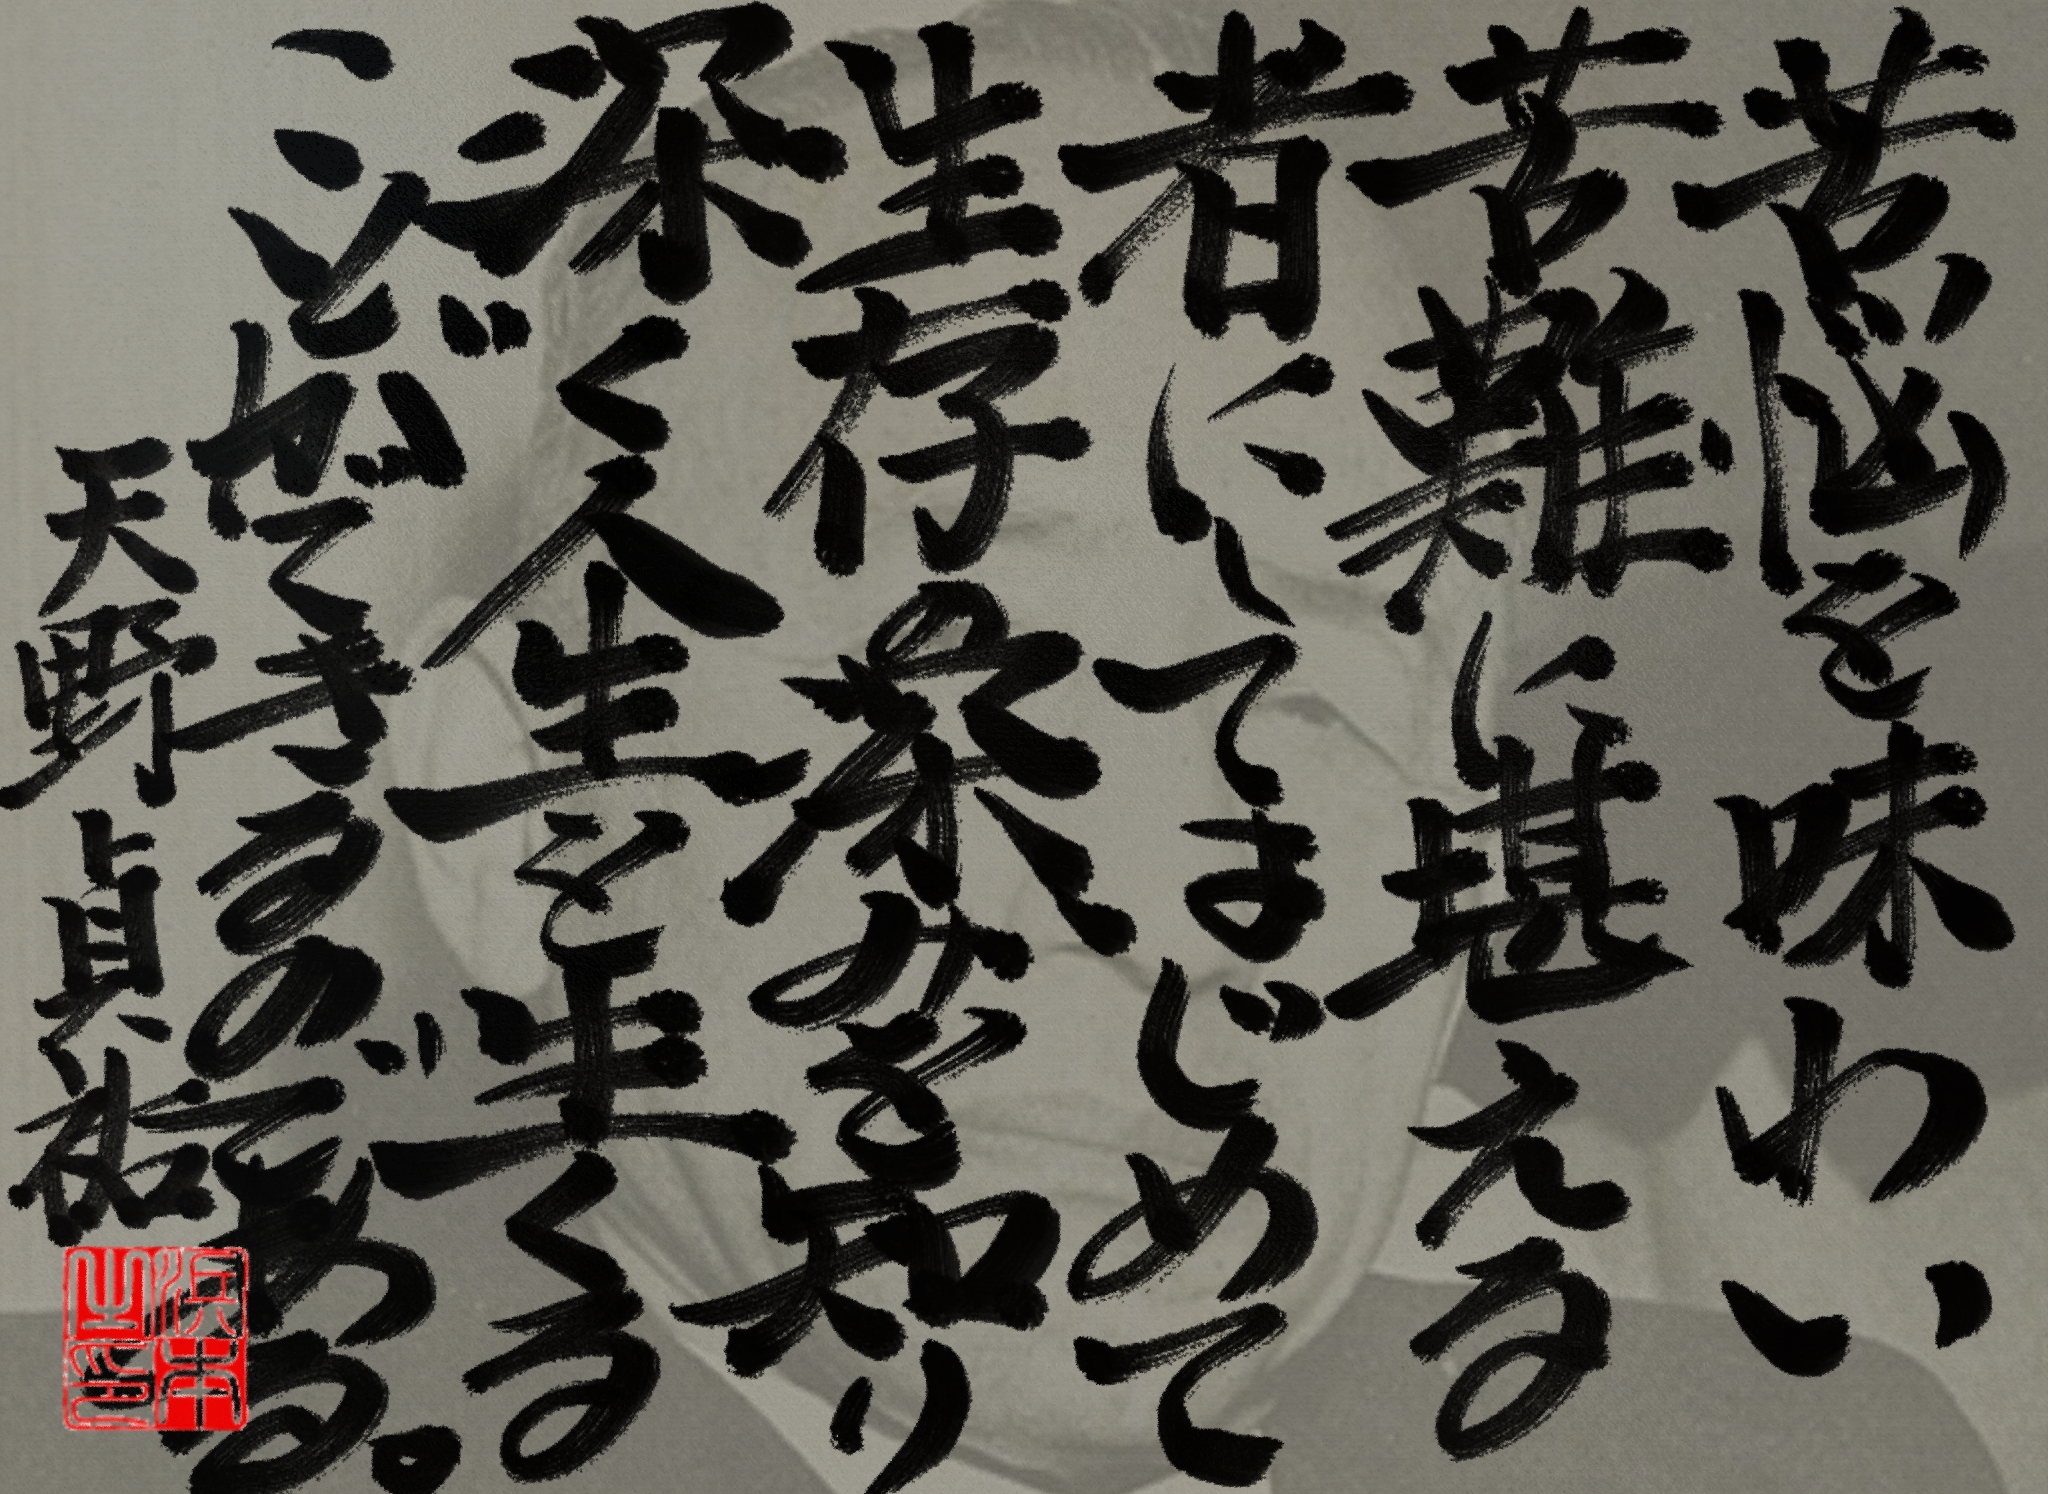 苦悩を味わい
苦難に堪える
者にしてまじめて
生存の恭みを知り
深く人生を生くる
ことができるのである。
天野貞祐
浜本之印